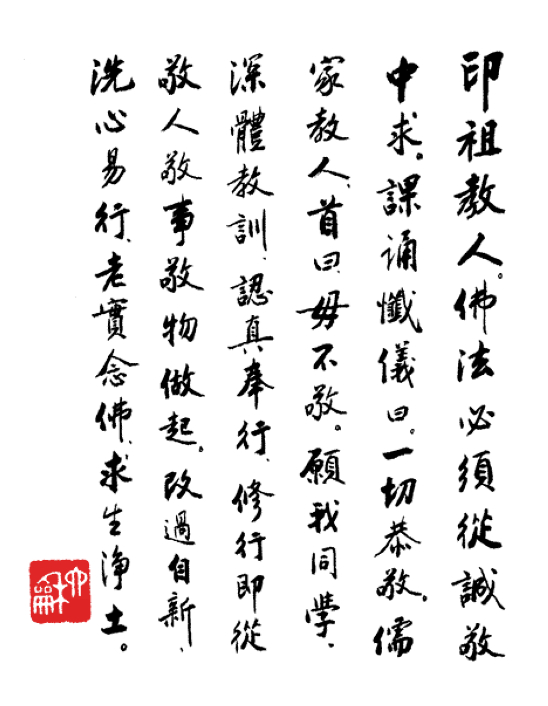 印祖教人。佛法必須從誠敬
中求。課誦懺儀曰。一切恭敬。儒
家教人、首曰、毋不敬。願我同學、
深體教訓、認真奉行、修行即從
敬人敬事敬物做起。改過自新、
洗心易行、老實念佛、求生淨土。